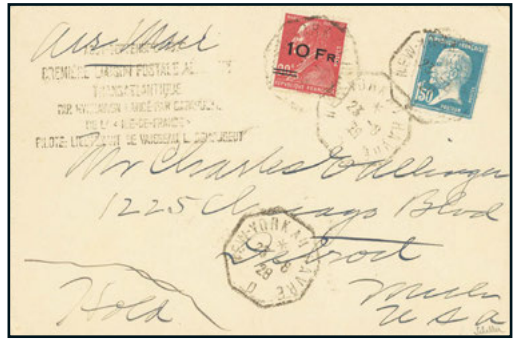 Air Mail
PREMIERE LIAISON POSTALE AERIENNE
TRANSATLANTIQUE
PAR HYDRAVION LANCÉ PAR CATAPULTE
DE L' « ILE-DE-FRANCE »
PILOTE: LIEUTENANT DE VAISSEAU L. DEMOUGEOT
10 FR
REPUBLIQUE FRANÇAISE
REPUBLIQUE FRANÇAISE
1F50
NEW-YORK AU HAVRE
23 -8
28
Mr Charles
1225 Chicago Blvd
Detroit
Mich
USA
NEW-YORK AU HAVRE D
23 -8
28
Hold